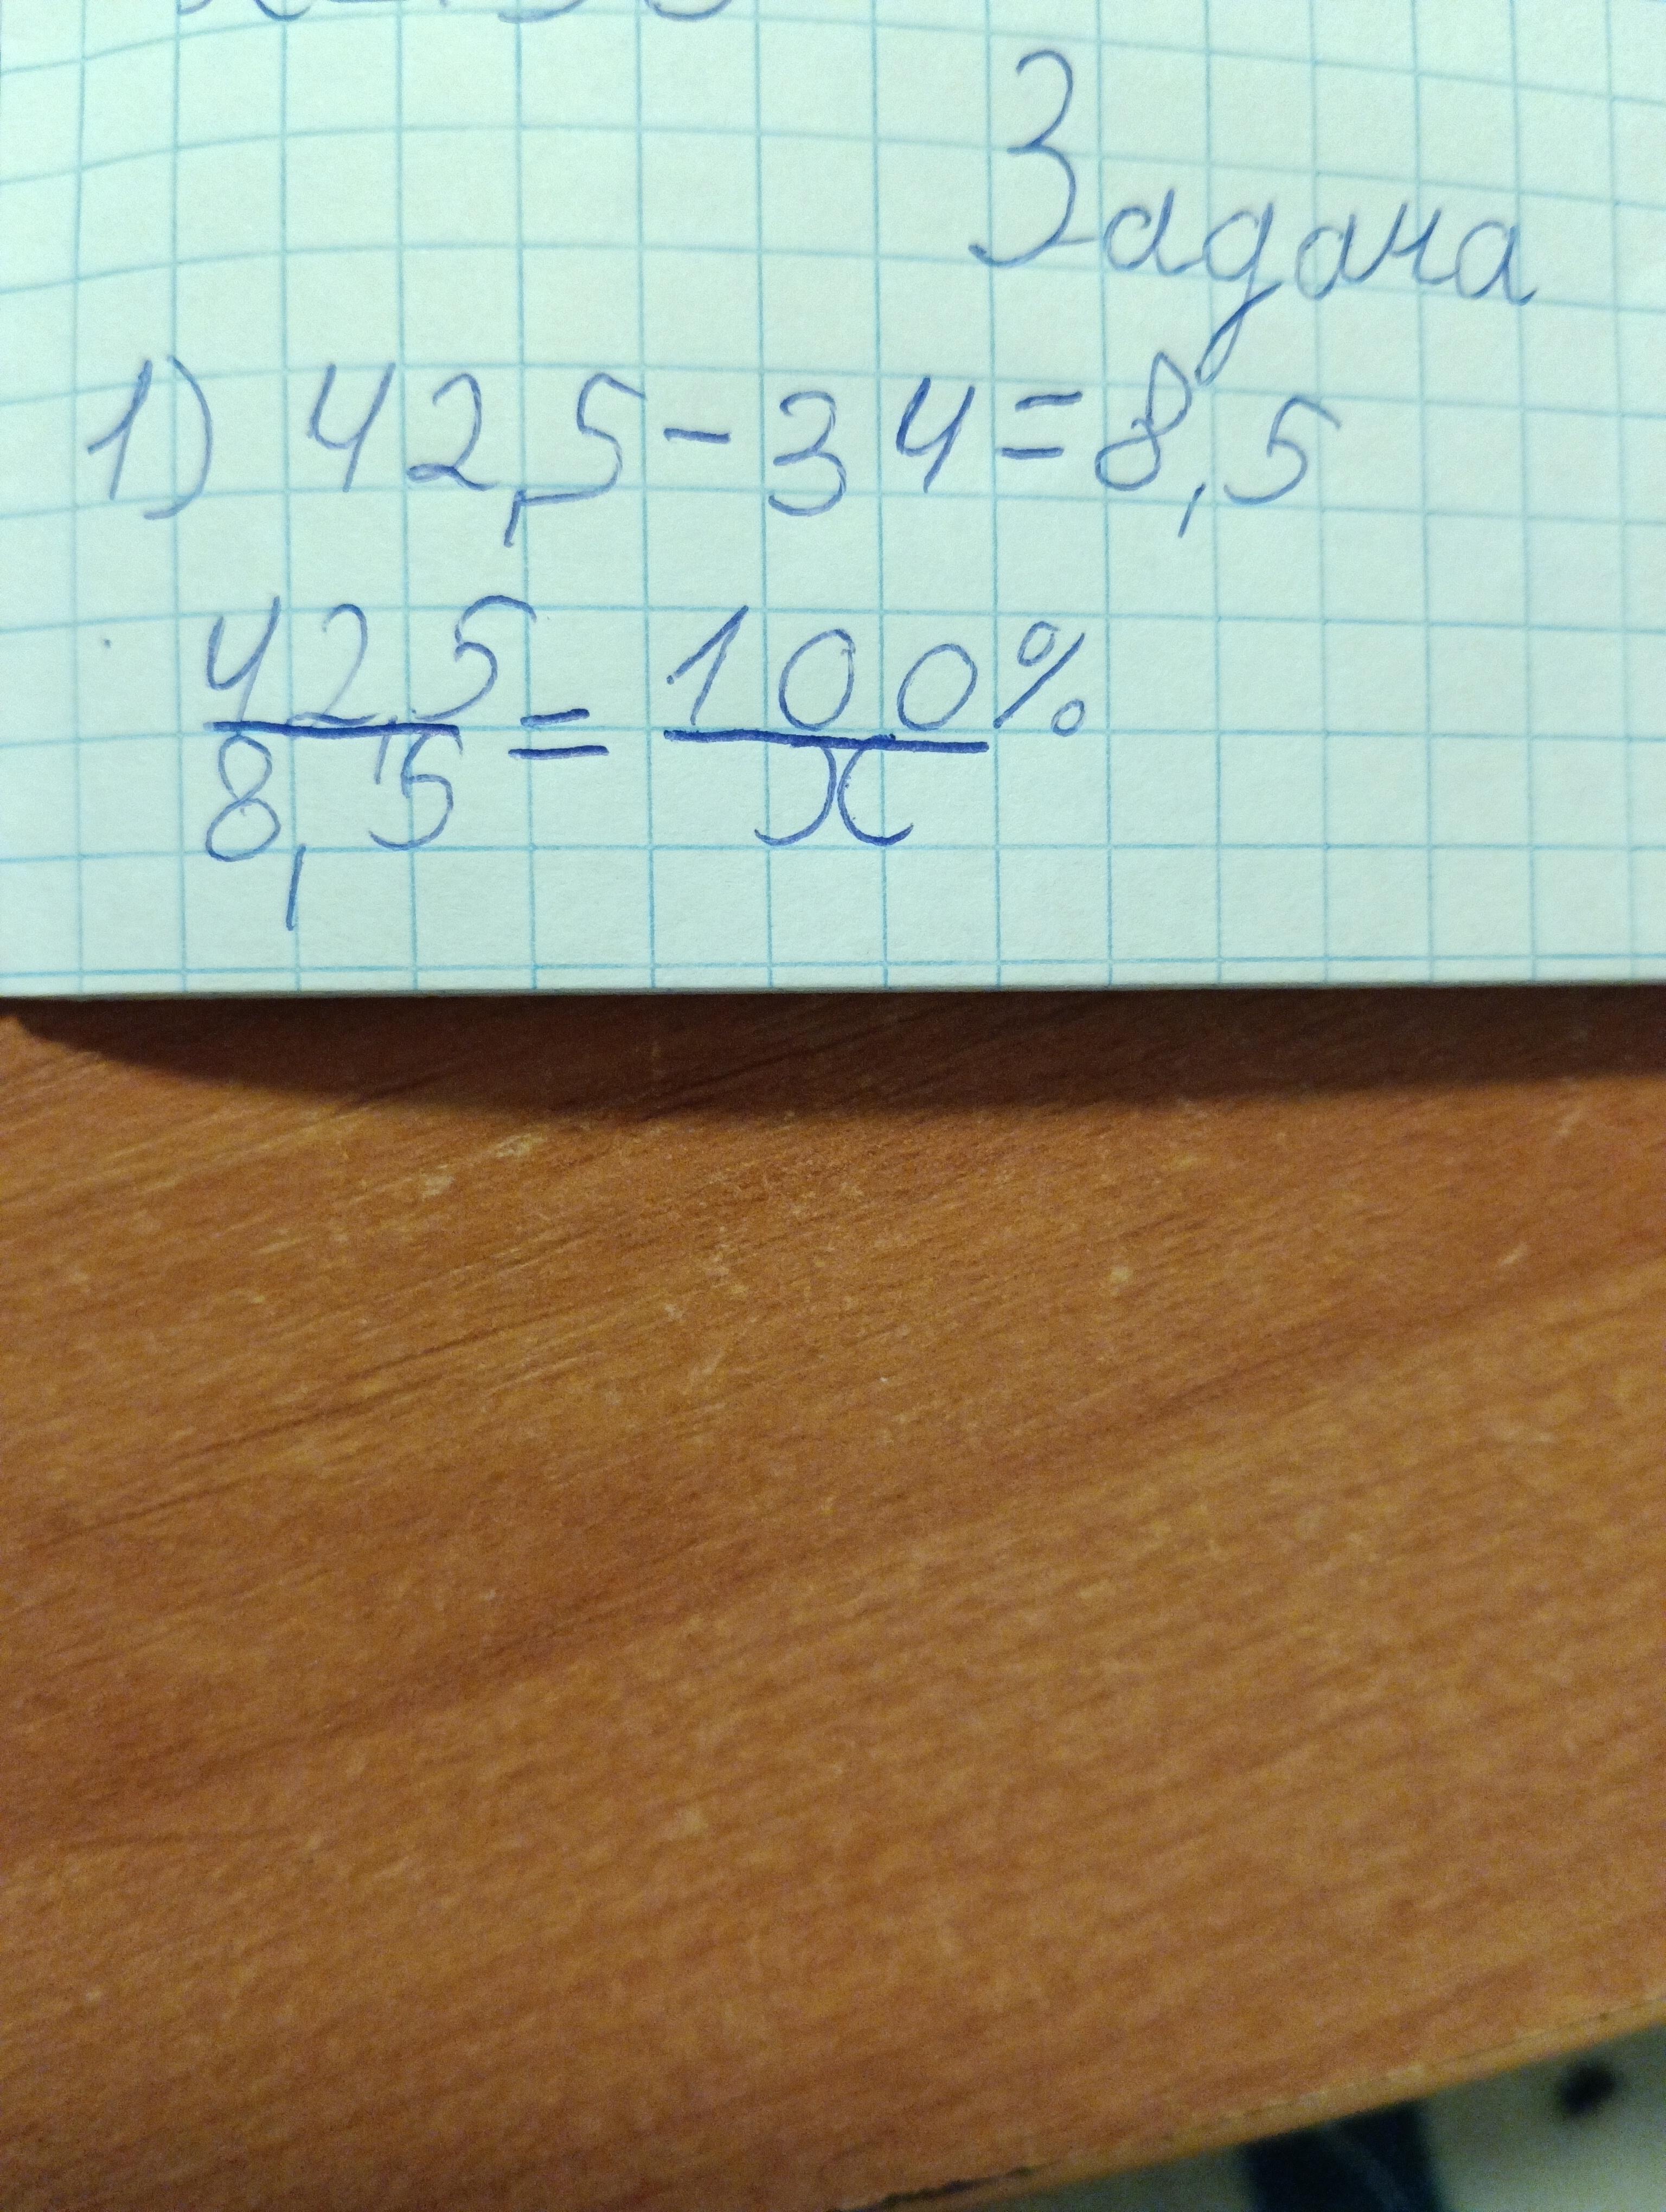 Задача
1) 42,5-34=8,5
42,5/8,5=100%/x